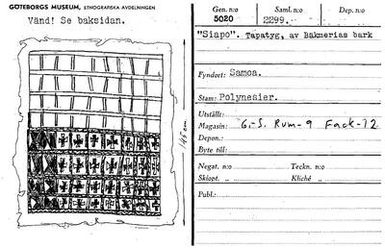 GÖTEBORGS MUSEUM, ETNOGRAFISKA AVDELNINGEN
Vänd! Se baksidan.
Gen. n:o
5020
Saml. n:o
2299.
Dep. n:o
"Siapo". Tapatyg, av Bakmerias bark
Fyndort: Samoa.
Stam: Polynesier.
Utställt:
Magasin: G.-S. Rum-9 Fack-12
Depon.:
Byte till:
Negat. n:o
Teckn. n:o
Skiopt. „
Kliché „
Publ.: